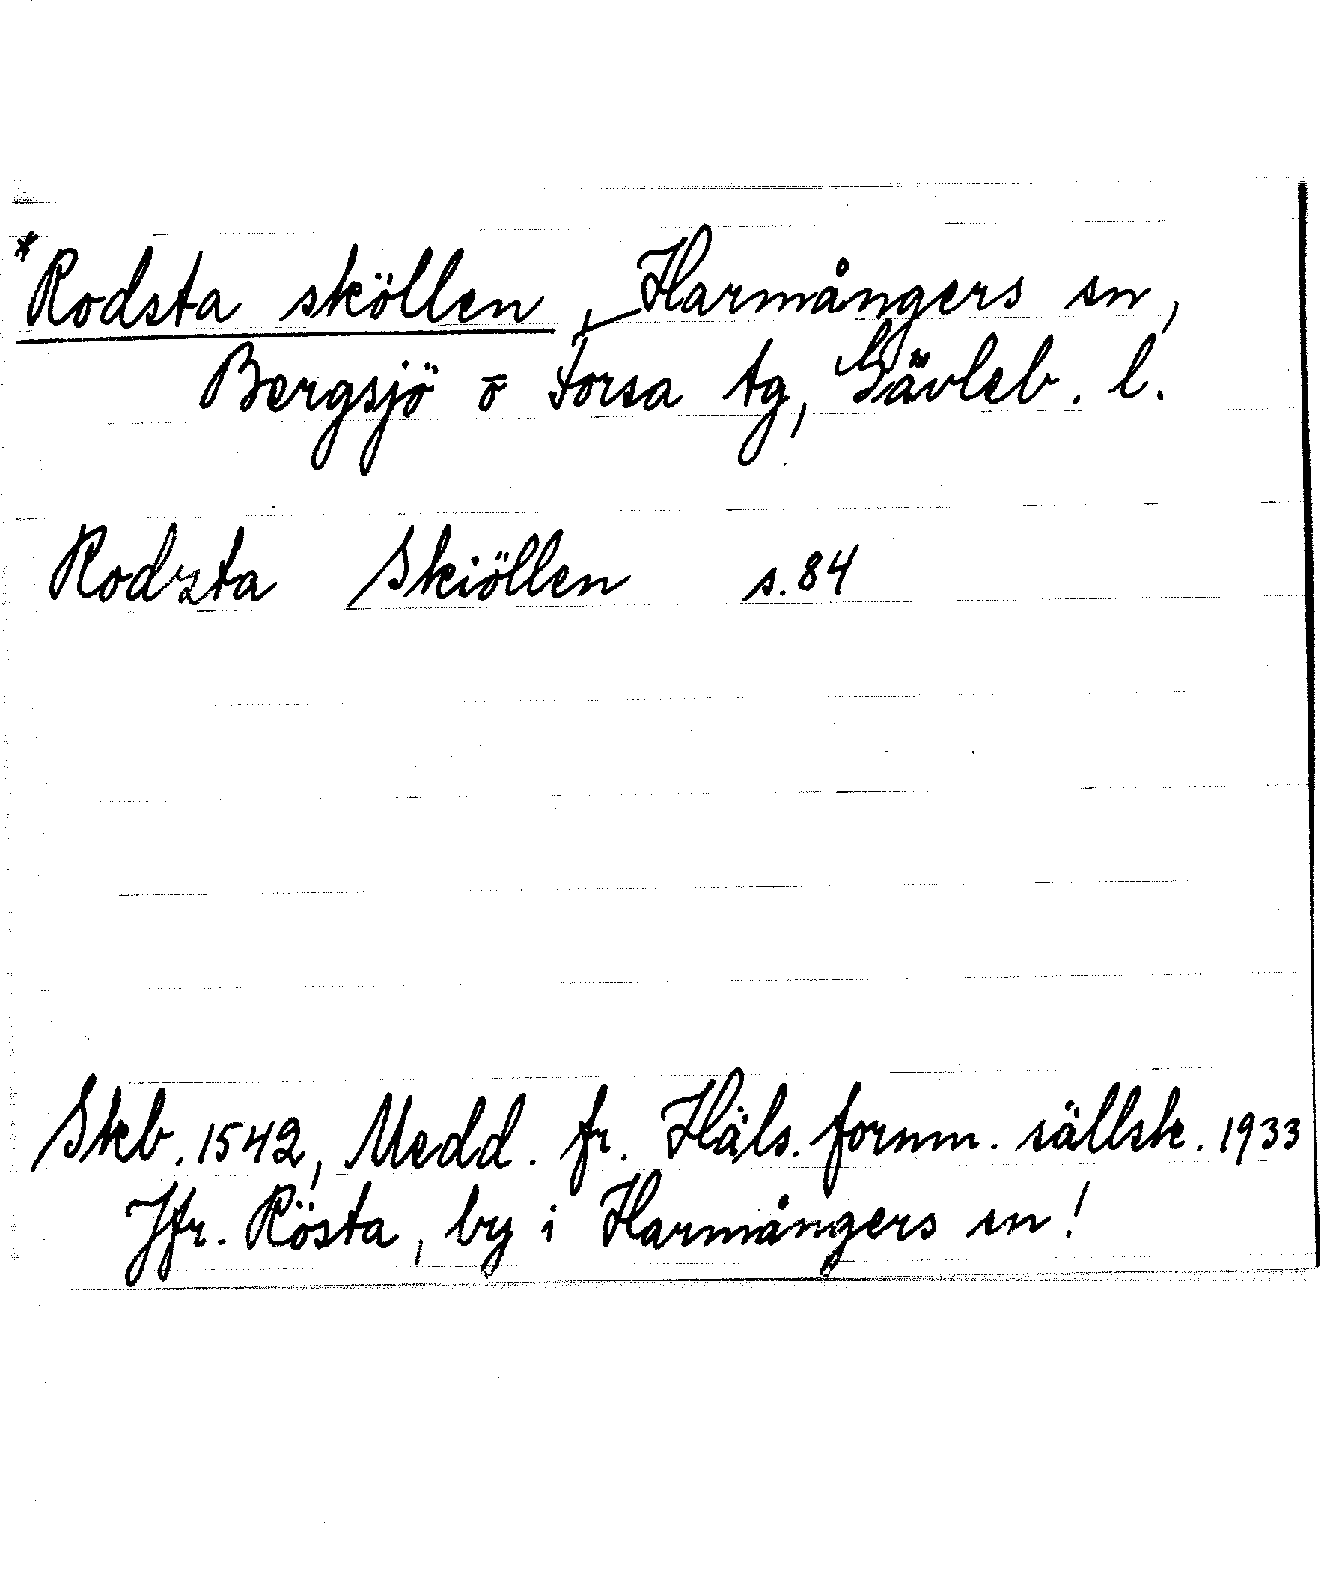 *Rodsta sköllen, Harmångers sn,
Bergsjö o Forsa tg, Gävleb. l.
Rodzta Skiöllen s. 84
Skb. 1542, Medd. fr. Häls. fornm. sällsk. 1933
Jfr. Rösta, by i Harmångers sn!